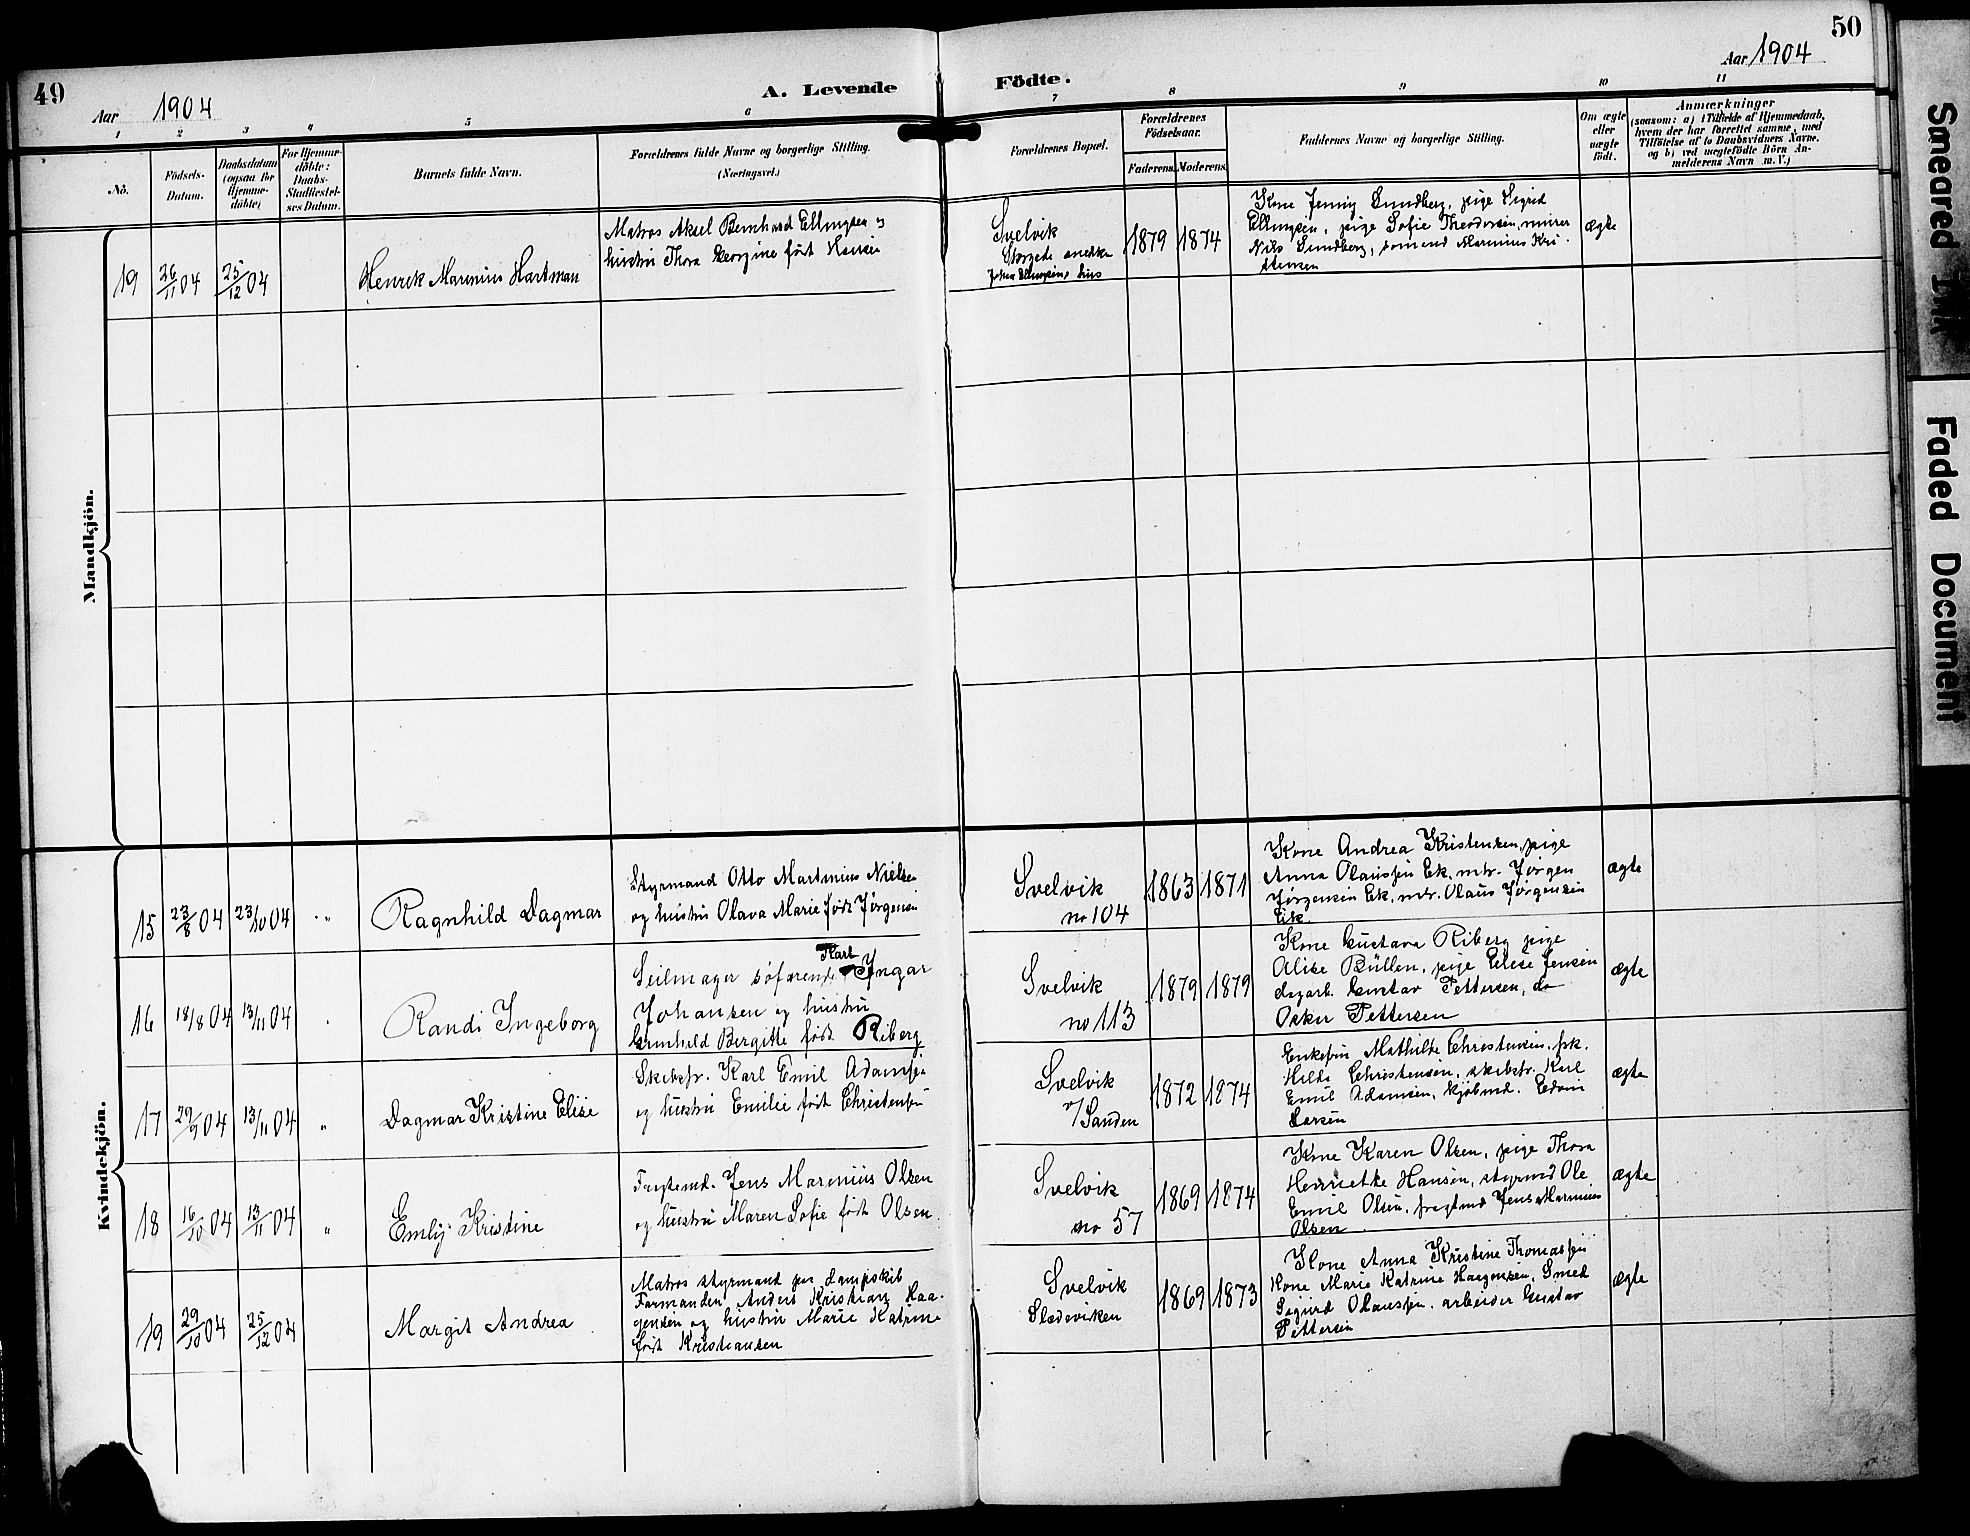 49
Aar 1904
A. Levende
Födte.
50
Aar 1904
1 2 3 4 5 6 7 8 9 10 11
No.
Födsels-
Datum.
Daabsdatum
(ogsaa for
Hjemme-
döbte)
For Hjemme-
döbte:
Daabs-
Stadfæstel-
ses Datum.
Barnets fulde Navn.
Forældrenes fulde Navne og borgerlige Stilling.
(Næringsvei.)
Forældrenes Bopæl.
Forældrenes
Födselsaar.
Faderens. Moderens.
Faddernes Navne og borgerlige Stilling.
Om ægte
eller
uægte
födt.
Anmærkninger
(saasom: a) i Tilfælde af Hjemmedaab,
hvem der har forrettet samme, med
Tilföielse af to Daabsvidners Navne.
og b) ved uægtefödte Börn An-
melderens Navn m. V.)
Mandkjön.
19
26/11 04
25/12 04
Henrik Marinius Hartman
Matros Aksel Bernhard Ellingsen og
hustru Thora Georgine født Hansen
Svelvik
Johan Ellingsens hus
1879
1874
Kone Jenny Lundberg, pige Sigrid
Ellingsen, pige Sofie Theodorsen, murer
Nils Lundberg, sømand Marinius Kri-
stensen
ægte
Kvindekjön.
15
23/8 04
23/10 04
"
Ragnhild Dagmar
Styrmand Otto Martinius Nielsen
og hustru Olava Marie født Jørgensen
Svelvik
no 104
1863
1871
Kone Andrea Kristensen, pige
Anna Olaussen Ek, mtr. Jørgen
Jørgensen Ek, mtr. Olaus Jørgensen
Eik
ægte
16
18/8 04
13/11 04
Randi Ingeborg
Karl
Seilmager søfarende Ingar
Johansen og hustru
Gunhild Bergitte født Riberg
Svelvik
no 113
1879
1879
Kone Gustava Riberg pige
Alise Büllen, pige Elise Jensen
dagarb. Gustav Pettersen, do
Oskar Pettersen
ægte
17
29/9 04
13/11 04
"
Dagmar Kristine Elise
Skibsfr. Karl Emil Adamsen
og hustru Emilie født Christensen
Svelvik
v/Sanden
1872
1874
Enkefru Mathilde Christensen, frk.
Hilda Christensen, skibsfr. Karl
Emil Adamsen, kjøbmd. Edvin
Larsen
ægte
18
16/10 04
13/11 04
"
Emly Kristine
Fragtemd. Jens Marinius Olsen
og hustru Maren Sofie født Olsen
Svelvik
no 57
1869
1874
Kone Karen Olsen, pige Thora
Henriette Hansen, styrmd Ole
Emil Olsen, fragtmd Jens Marinius
Olsen
ægte
19
29/10 04
25/12 04
Margit Andrea
Matros styrmand paa dampskib
Formanden Anders Kristian Haa-
gensen og hustru Marie Katrine
født Kristiansen
Svelvik
Sladeviken
1869
1873
Kone Anna Kristine Thomassen
Kone Marie Katrine Haagensen, Smed
Sigurd Olaussen, arbeider Gustav
Pettersen
ægte
Smeared Ink
Faded Document